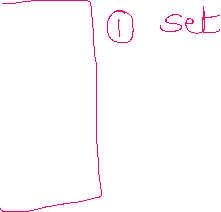 ① set